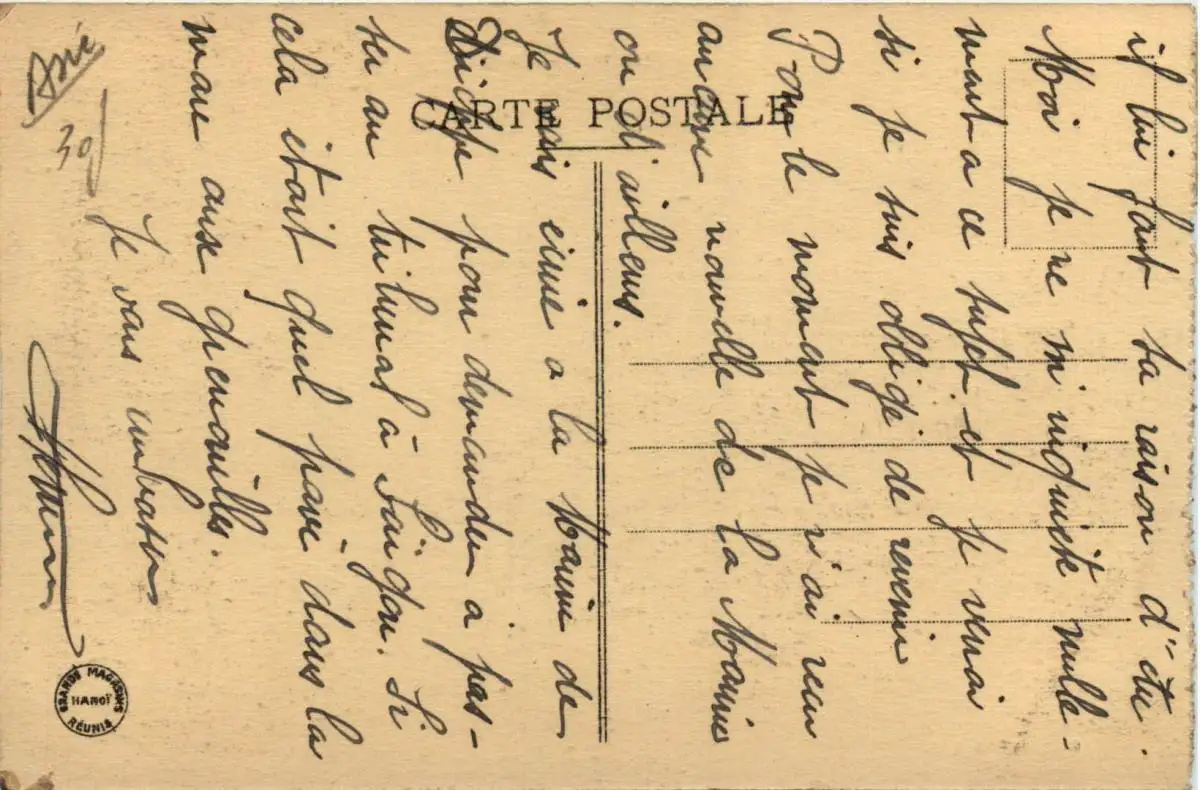 il lui faut sa raison d'être.
Moi je ne m'inquiète nulle-
ment a ce sujet et je verrai
si je suis obligé de revenir
Pour le moment je n'ai reçu
aucune nouvelle de la Mairie
ou d'ailleurs.
Je vais écrire a la Mairie de
pour demander a pas-
ser au tribunal à Saïgon. Si
cela était quel pavé dans la
mare aux grenouilles.
Je vous embrasse
CARTE POSTALE
Asie
30
GRANDS MAGASINS
HANOI
RÉUNIS